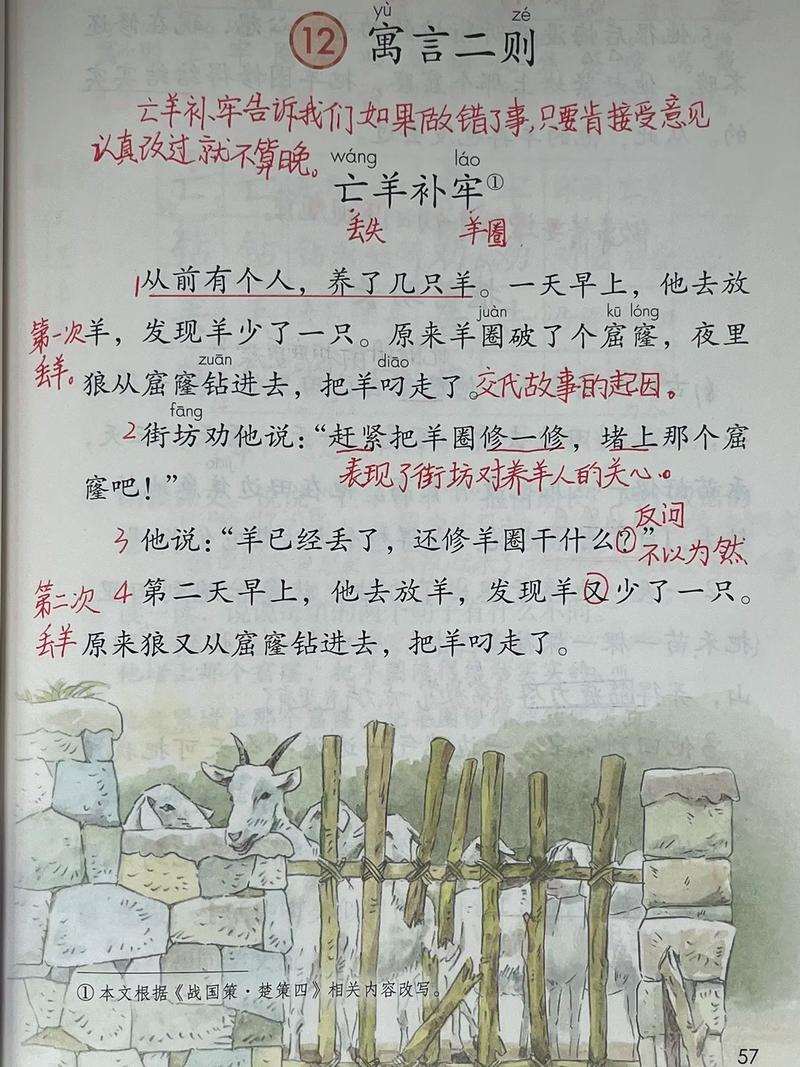 yù zé
12 寓言二则
亡羊补牢告诉我们如果做错了事,只要肯接受意见
认真改过,就不算晚。
wáng láo
亡羊补牢①
丢失 羊圈
1从前有个人,养了几只羊。一天早上,他去放
juàn kū lóng
第一次 羊,发现羊少了一只。原来羊圈破了个窟窿,夜里
zuān diāo
丢羊。 狼从窟窿钻进去,把羊叼走了。交代故事的起因。
fāng
2街坊劝他说:“赶紧把羊圈修一修,堵上那个窟
窿吧!” 表现了街坊对养羊人的关心。
反问
3他说:“羊已经丢了,还修羊圈干什么?” 不以为然
第二次 4第二天早上,他去放羊,发现羊又少了一只。
丢羊 原来狼又从窟窿钻进去,把羊叼走了。
①本文根据《战国策·楚策四》相关内容改写。
57